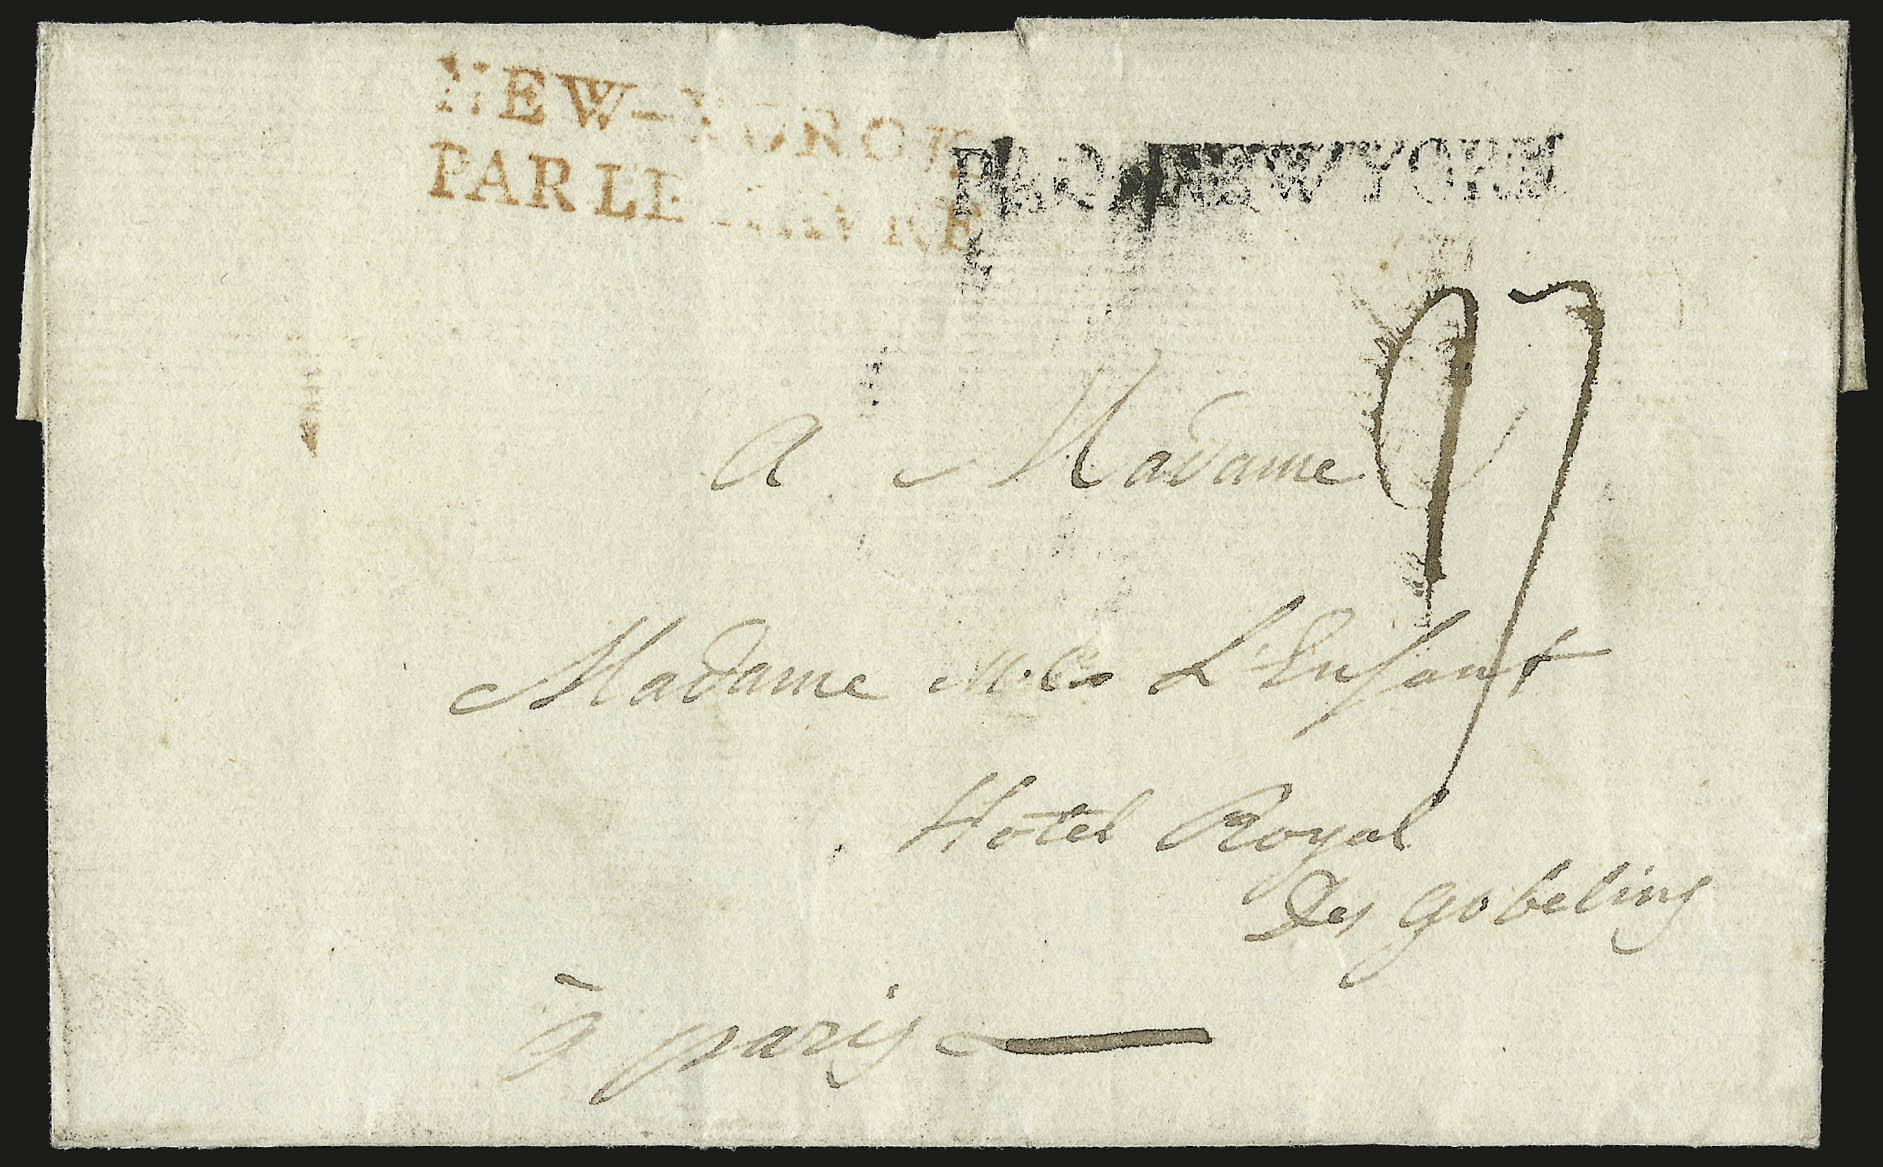 NEW-YORCK
PAR LE HAVRE
PAQ. NEW YORK
97
a Madame
Madame L'Enfant
Hotel Royal
Des gobelins
à paris